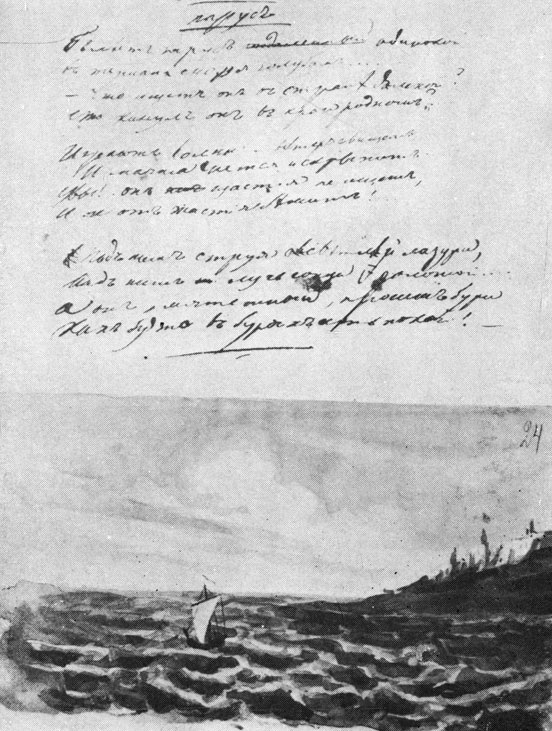 парусъ
Бѣлѣетъ парусъ одинокой
въ туманѣ моря голубомъ....
— Что ищетъ онъ въ странѣ далекой?
Что кинулъ онъ въ краю родномъ?
Играютъ волны — вѣтеръ свищетъ
И мачта гнется и скрыпитъ
Увы! онъ щастія не ищетъ,
И не отъ щастія бѣжитъ!
Подъ нимъ струя свѣтлѣй лазури,
Надъ нимъ лучь солнца золотой...
А онъ, мятежный, проситъ бури
Какъ будто въ буряхъ есть покой! —
24